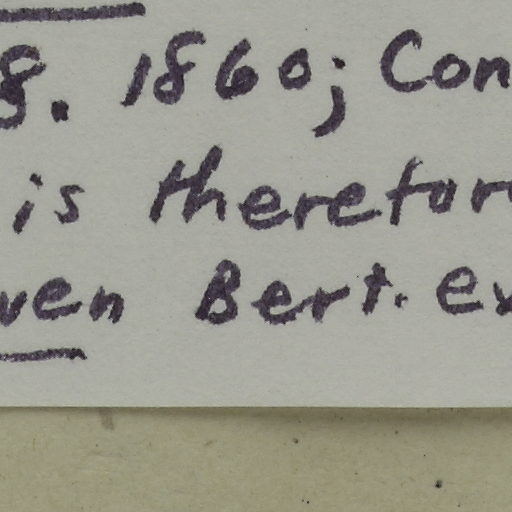 8. 1860; Con
is therefor
ven Bert. ev